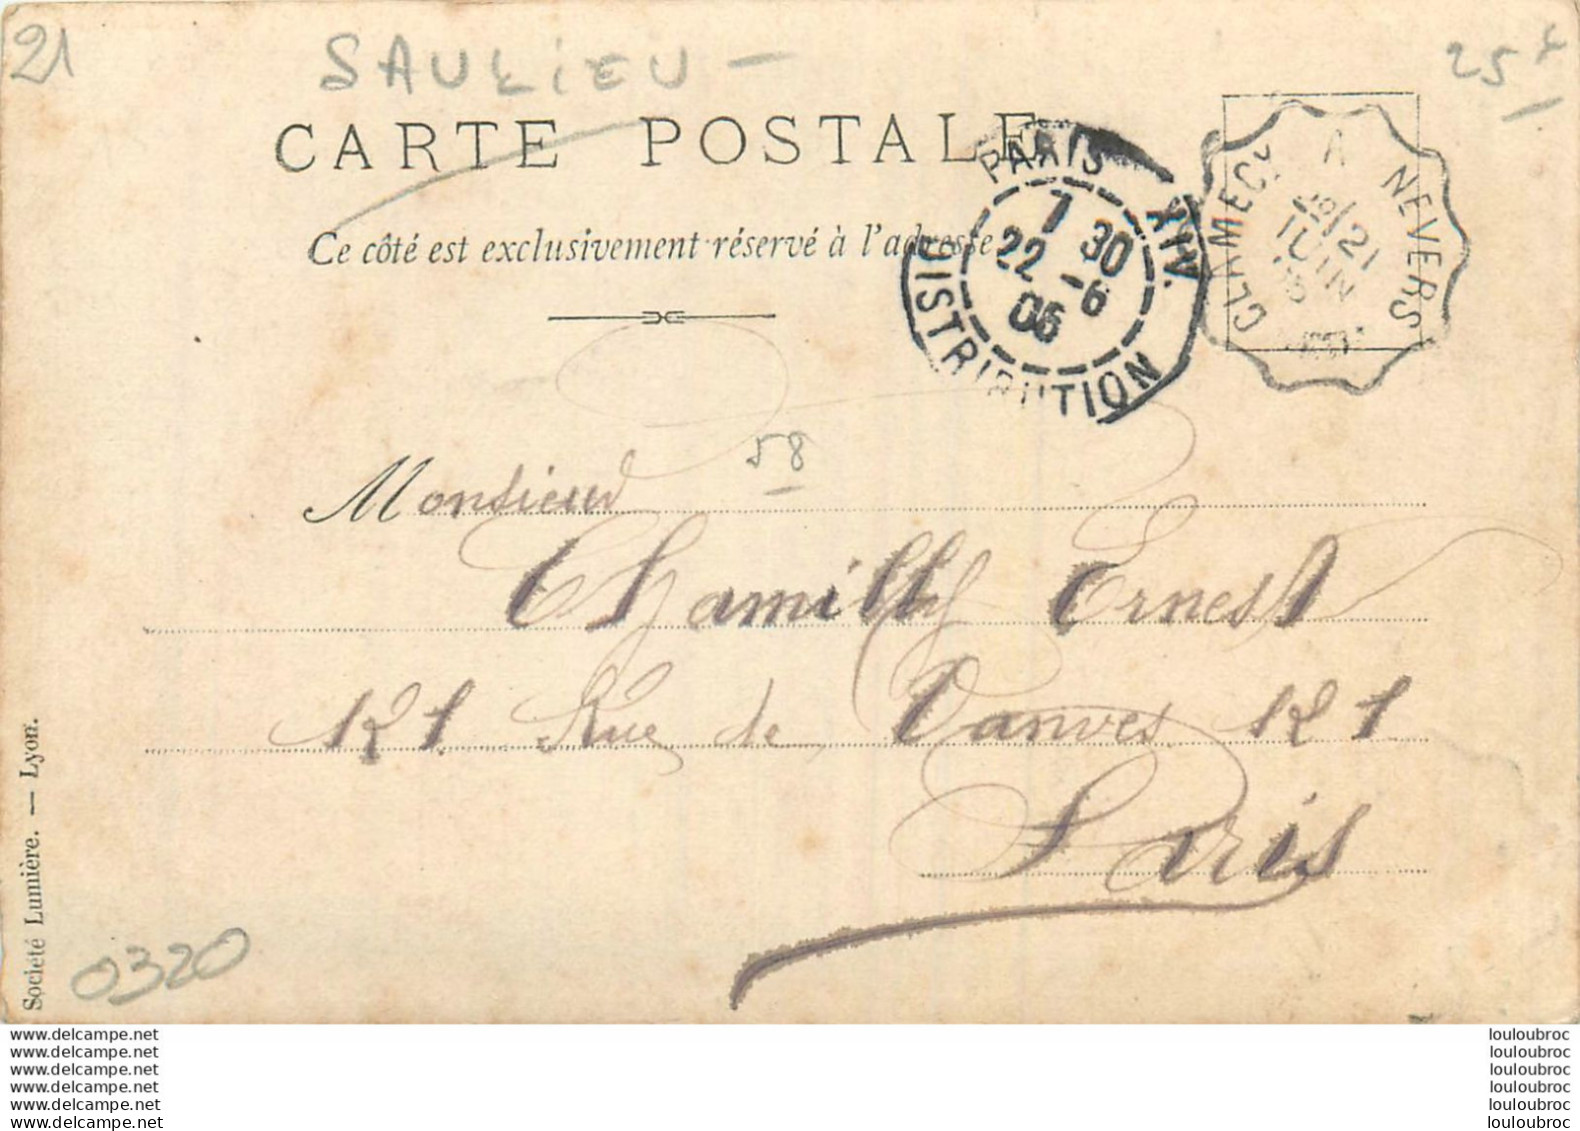 21
SAULIEU -
25 f
CARTE POSTALE
Ce côté est exclusivement réservé à l'adresse
PARIS XIV.
7 30
22 -6
06
DISTRIBUTION
CLAMECY A NEVERS
21
JUIN
58
Monsieur
Chamilly Ernest
121 Rue de Vanves 121
Paris
Société Lumière. — Lyon.
0320
www.delcampe.net
www.delcampe.net
www.delcampe.net
www.delcampe.net
www.delcampe.net
www.delcampe.net
louloubroc
louloubroc
louloubroc
louloubroc
louloubroc
louloubroc